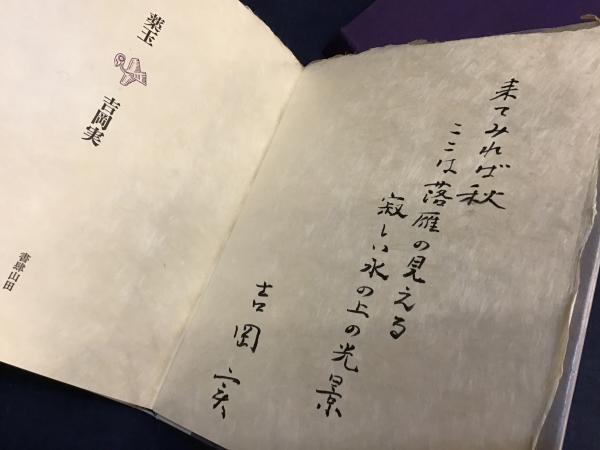 来てみれば秋
ここは落雁の見える
寂しい水の上の光景
吉岡実
薬玉
吉岡実
書肆山田